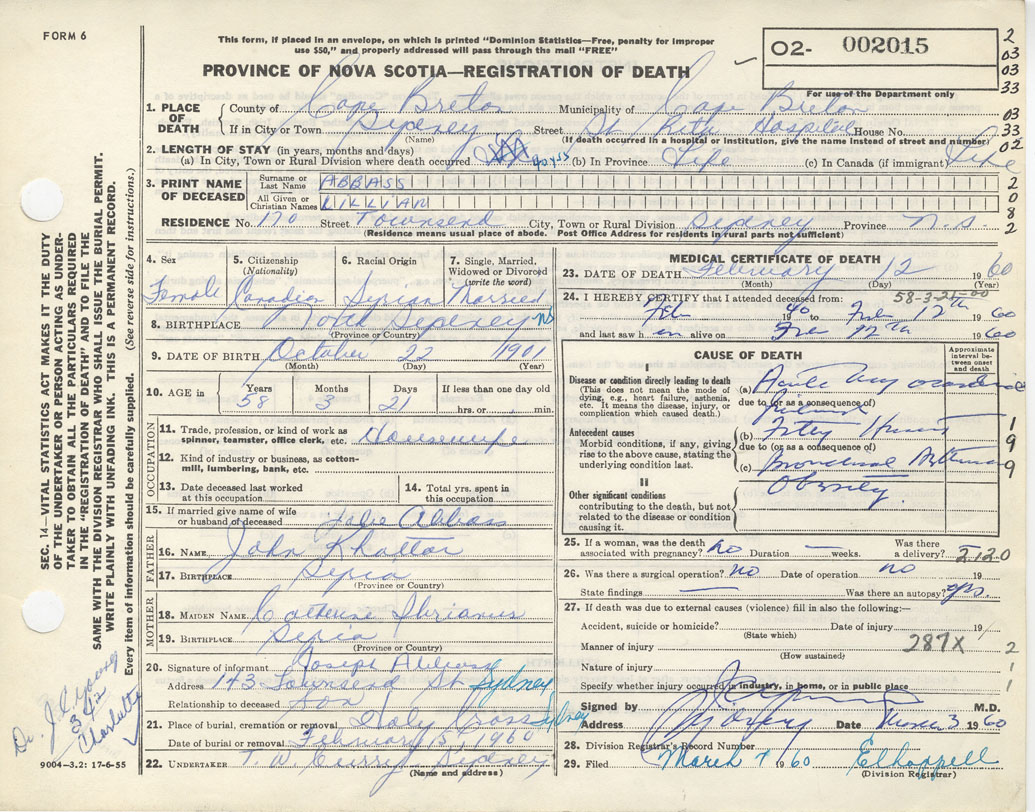 FORM 6
This form, if placed in an envelope, on which is printed "Dominion Statistics—Free, penalty for improper
use $50," and properly addressed will pass through the mail "FREE"
O2- 002015
For use of the Department only
PROVINCE OF NOVA SCOTIA—REGISTRATION OF DEATH
2
03
03
33
03
33
02
2
0
8
2
1. PLACE OF DEATH
County of Cape Breton Municipality of Cape Breton
If in City or Town Sydney Street St Rita Hospital House No.
(Name) (If death occurred in a hospital or institution, give the name instead of street and number)
2. LENGTH OF STAY (in years, months and days)
(a) In City, Town or Rural Division where death occurred days (b) In Province Life (c) In Canada (if immigrant) Life
3. PRINT NAME OF DECEASED
Surname or Last Name ABBASS
All Given or Christian Names LILLIAN
RESIDENCE No. 170 Street Townsend City, Town or Rural Division Sydney Province N.S.
(Residence means usual place of abode. Post Office Address for residents in rural parts not sufficient)
4. Sex Female
5. Citizenship (Nationality) Canadian
6. Racial Origin Syrian
7. Single, Married, Widowed or Divorced (write the word) Married
8. BIRTHPLACE North Sydney NS
(Province or Country)
9. DATE OF BIRTH October 22 1901
(Month) (Day) (Year)
10. AGE in Years 58 Months 3 Days 21 If less than one day old hrs. or min.
OCCUPATION
11. Trade, profession, or kind of work as spinner, teamster, office clerk, etc. Housewife
12. Kind of industry or business, as cotton-mill, lumbering, bank, etc.
13. Date deceased last worked at this occupation
14. Total yrs. spent in this occupation
15. If married give name of wife or husband of deceased Abbass
FATHER
16. NAME John Khattar
17. BIRTHPLACE Syria
(Province or Country)
MOTHER
18. MAIDEN NAME
19. BIRTHPLACE Syria
(Province or Country)
20. Signature of informant Joseph Abbass
Address 143 Townsend St Sydney
Relationship to deceased Son
21. Place of burial, cremation or removal Holy Cross Sydney
Date of burial or removal February 15, 1960
22. UNDERTAKER T. W. Curry Sydney
(Name and address)
MEDICAL CERTIFICATE OF DEATH
23. DATE OF DEATH February 12 1960
(Month) (Day) (Year)
58-3-21-00
24. I HEREBY CERTIFY that I attended deceased from:
Feb 1940 to Feb 12th 1960
and last saw her alive on Feb 12th 1960
CAUSE OF DEATH
Approximate interval between onset and death
I
Disease or condition directly leading to death
(This does not mean the mode of dying, e.g., heart failure, asthenia, etc. It means the disease, injury, or complication which caused death.)
(a) Acute myocardial
due to (or as a consequence of)
failure
Antecedent causes
Morbid conditions, if any, giving rise to the above cause, stating the underlying condition last.
(b) Fatty Heart
due to (or as a consequence of)
(c) Bronchial Asthma
1
9
9
II
Other significant conditions
contributing to the death, but not related to the disease or condition causing it.
Obesity
25. If a woman, was the death associated with pregnancy? no Duration — weeks. Was there a delivery? 2120
26. Was there a surgical operation? no Date of operation no 19
State findings — Was there an autopsy? yes.
27. If death was due to external causes (violence) fill in also the following:—
Accident, suicide or homicide? Date of injury 19
(State which)
Manner of injury 287X 2
(How sustained)
Nature of injury 1
Specify whether injury occurred in industry, in home, or in public place 1
Signed by M.D.
Address Sydney Date March 3 1960
28. Division Registrar's Record Number
29. Filed March 7 1960
(Division Registrar)
SEC. 14—VITAL STATISTICS ACT MAKES IT THE DUTY
OF THE UNDERTAKER OR PERSON ACTING AS UNDER-
TAKER TO OBTAIN ALL THE PARTICULARS REQUIRED
IN THE "REGISTRATION OF DEATH" AND TO FILE THE
SAME WITH THE DIVISION REGISTRAR WHO SHALL ISSUE THE BURIAL PERMIT.
WRITE PLAINLY WITH UNFADING INK. THIS IS A PERMANENT RECORD.
Every item of information should be carefully supplied. (See reverse side for instructions.)
Dr.
342
Charlotte
9004-3.2: 17-6-55